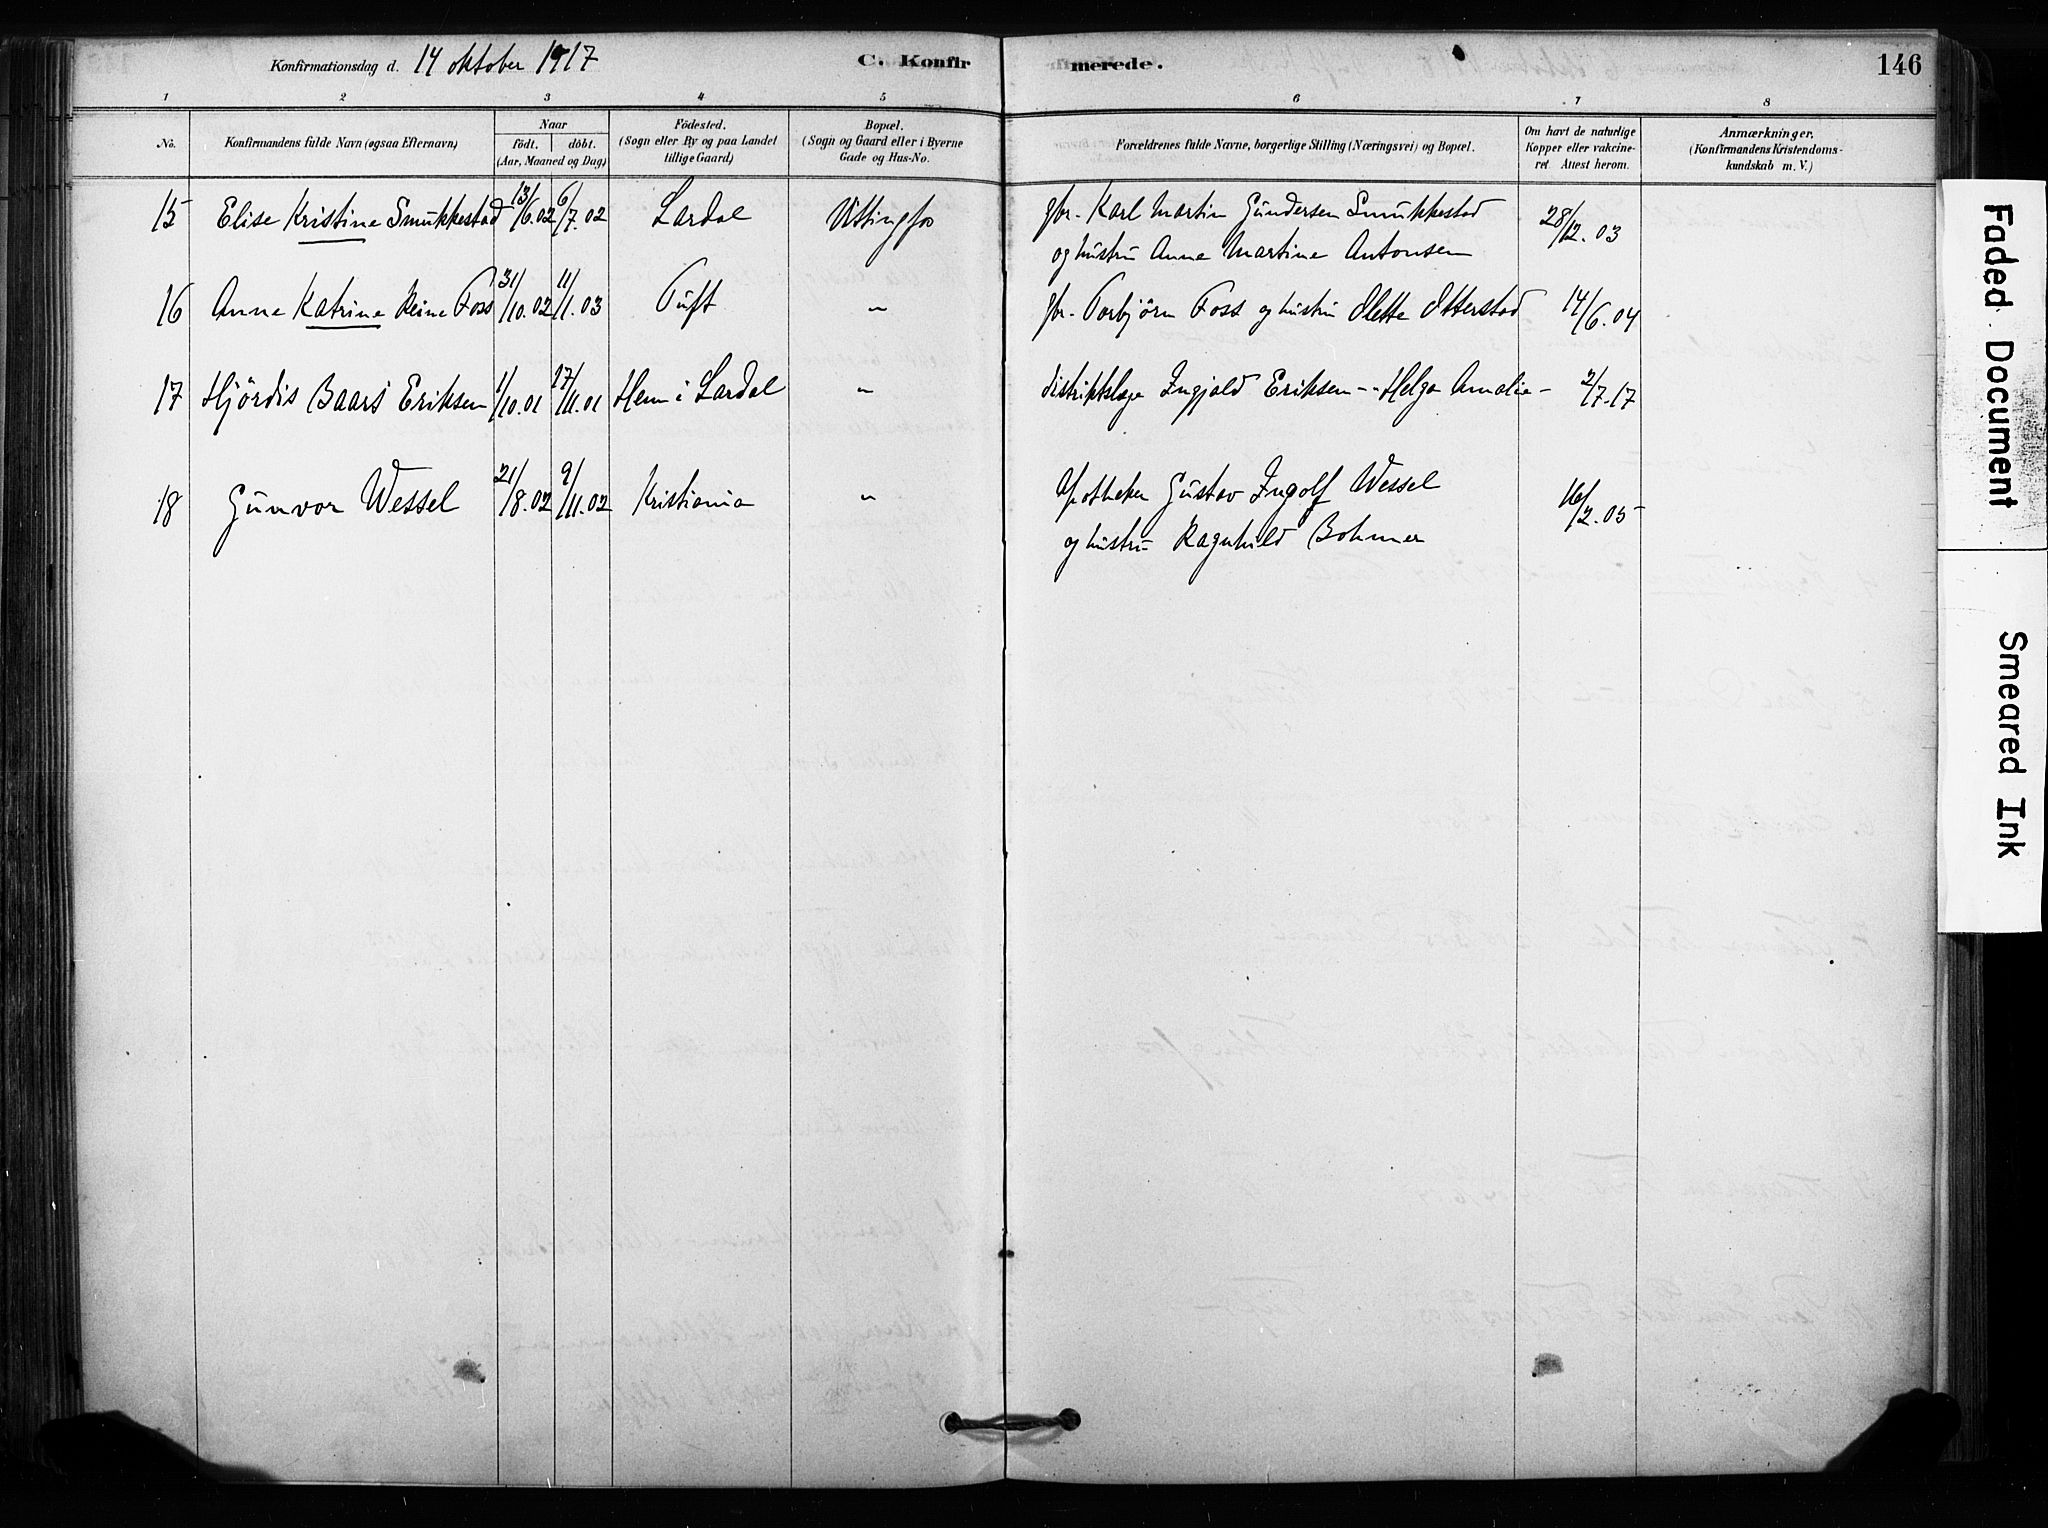 Konfirmationsdag d. 14 oktober 1917 C. Konfirmerede. 146
1 2 3 4 5 6 7 8
No. Konfirmandens fulde Navn (ogsaa Efternavn) Naar födt. döbt. (Aar, Maaned og Dag) Födested. (Sogn eller By og paa Landet tillige Gaard) Bopæl. (Sogn og Gaard eller i Byerne Gade og Hus-No. Forældrenes fulde Navne, borgerlige Stilling (Næringsvei) og Bopæl. Om havt de naturlige Kopper eller vakcineret Attest herom. Anmærkninger. (Konfirmandens Kristendomskundskab m. V.)
15 Elise Kristine Smukkestad 13/6.02 6/7.02 Lardal Vittingfos gbr. Karl Martin Gundersen Smukkestad 28/12.03
og hustru Anne Martine Antonsen
16 Anne Katrine Reine Foss 31/10.02 11/1.03 Tuft " gbr. Torbjörn Foss og hustru Olette Otterstad 14/6.04
17 Hjördis Baars Eriksen 1/10.01 17/11.01 Hem i Lardal " distriktslæge Ingjald Eriksen - " Helga Amalie - 2/7.17
18 Gunvor Wessel 21/8.02 9/11.02 Kristiania " Apotheker Gustav Ingolf Wessel 16/2.05
og hustru Ragnhild Bohmer
Faded Document
Smeared Ink